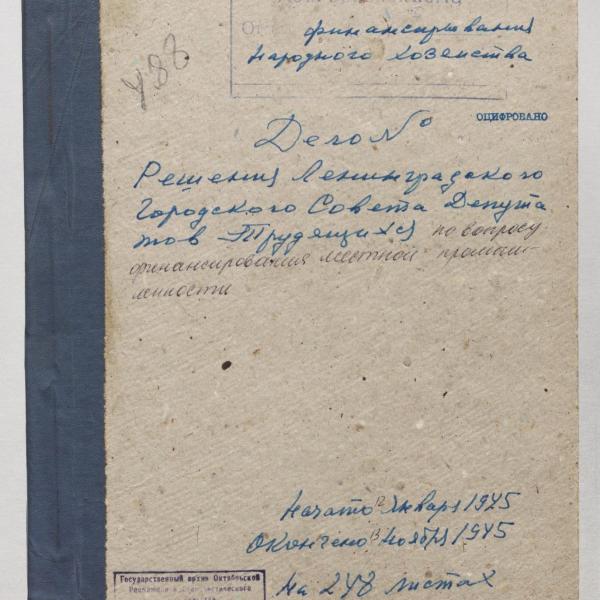 финансирования
Народного хозяйства
488
ОЦИФРОВАНО
Дело №
Решения Ленинградского
Городского Совета Депута
тов Трудящихся по вопросу
финансирования местной промыш-
ленности
Начато 12 Января 1945
Окончено 13 Ноября 1945
Государственный архив Октябрьской
Революции и
На 248 листах